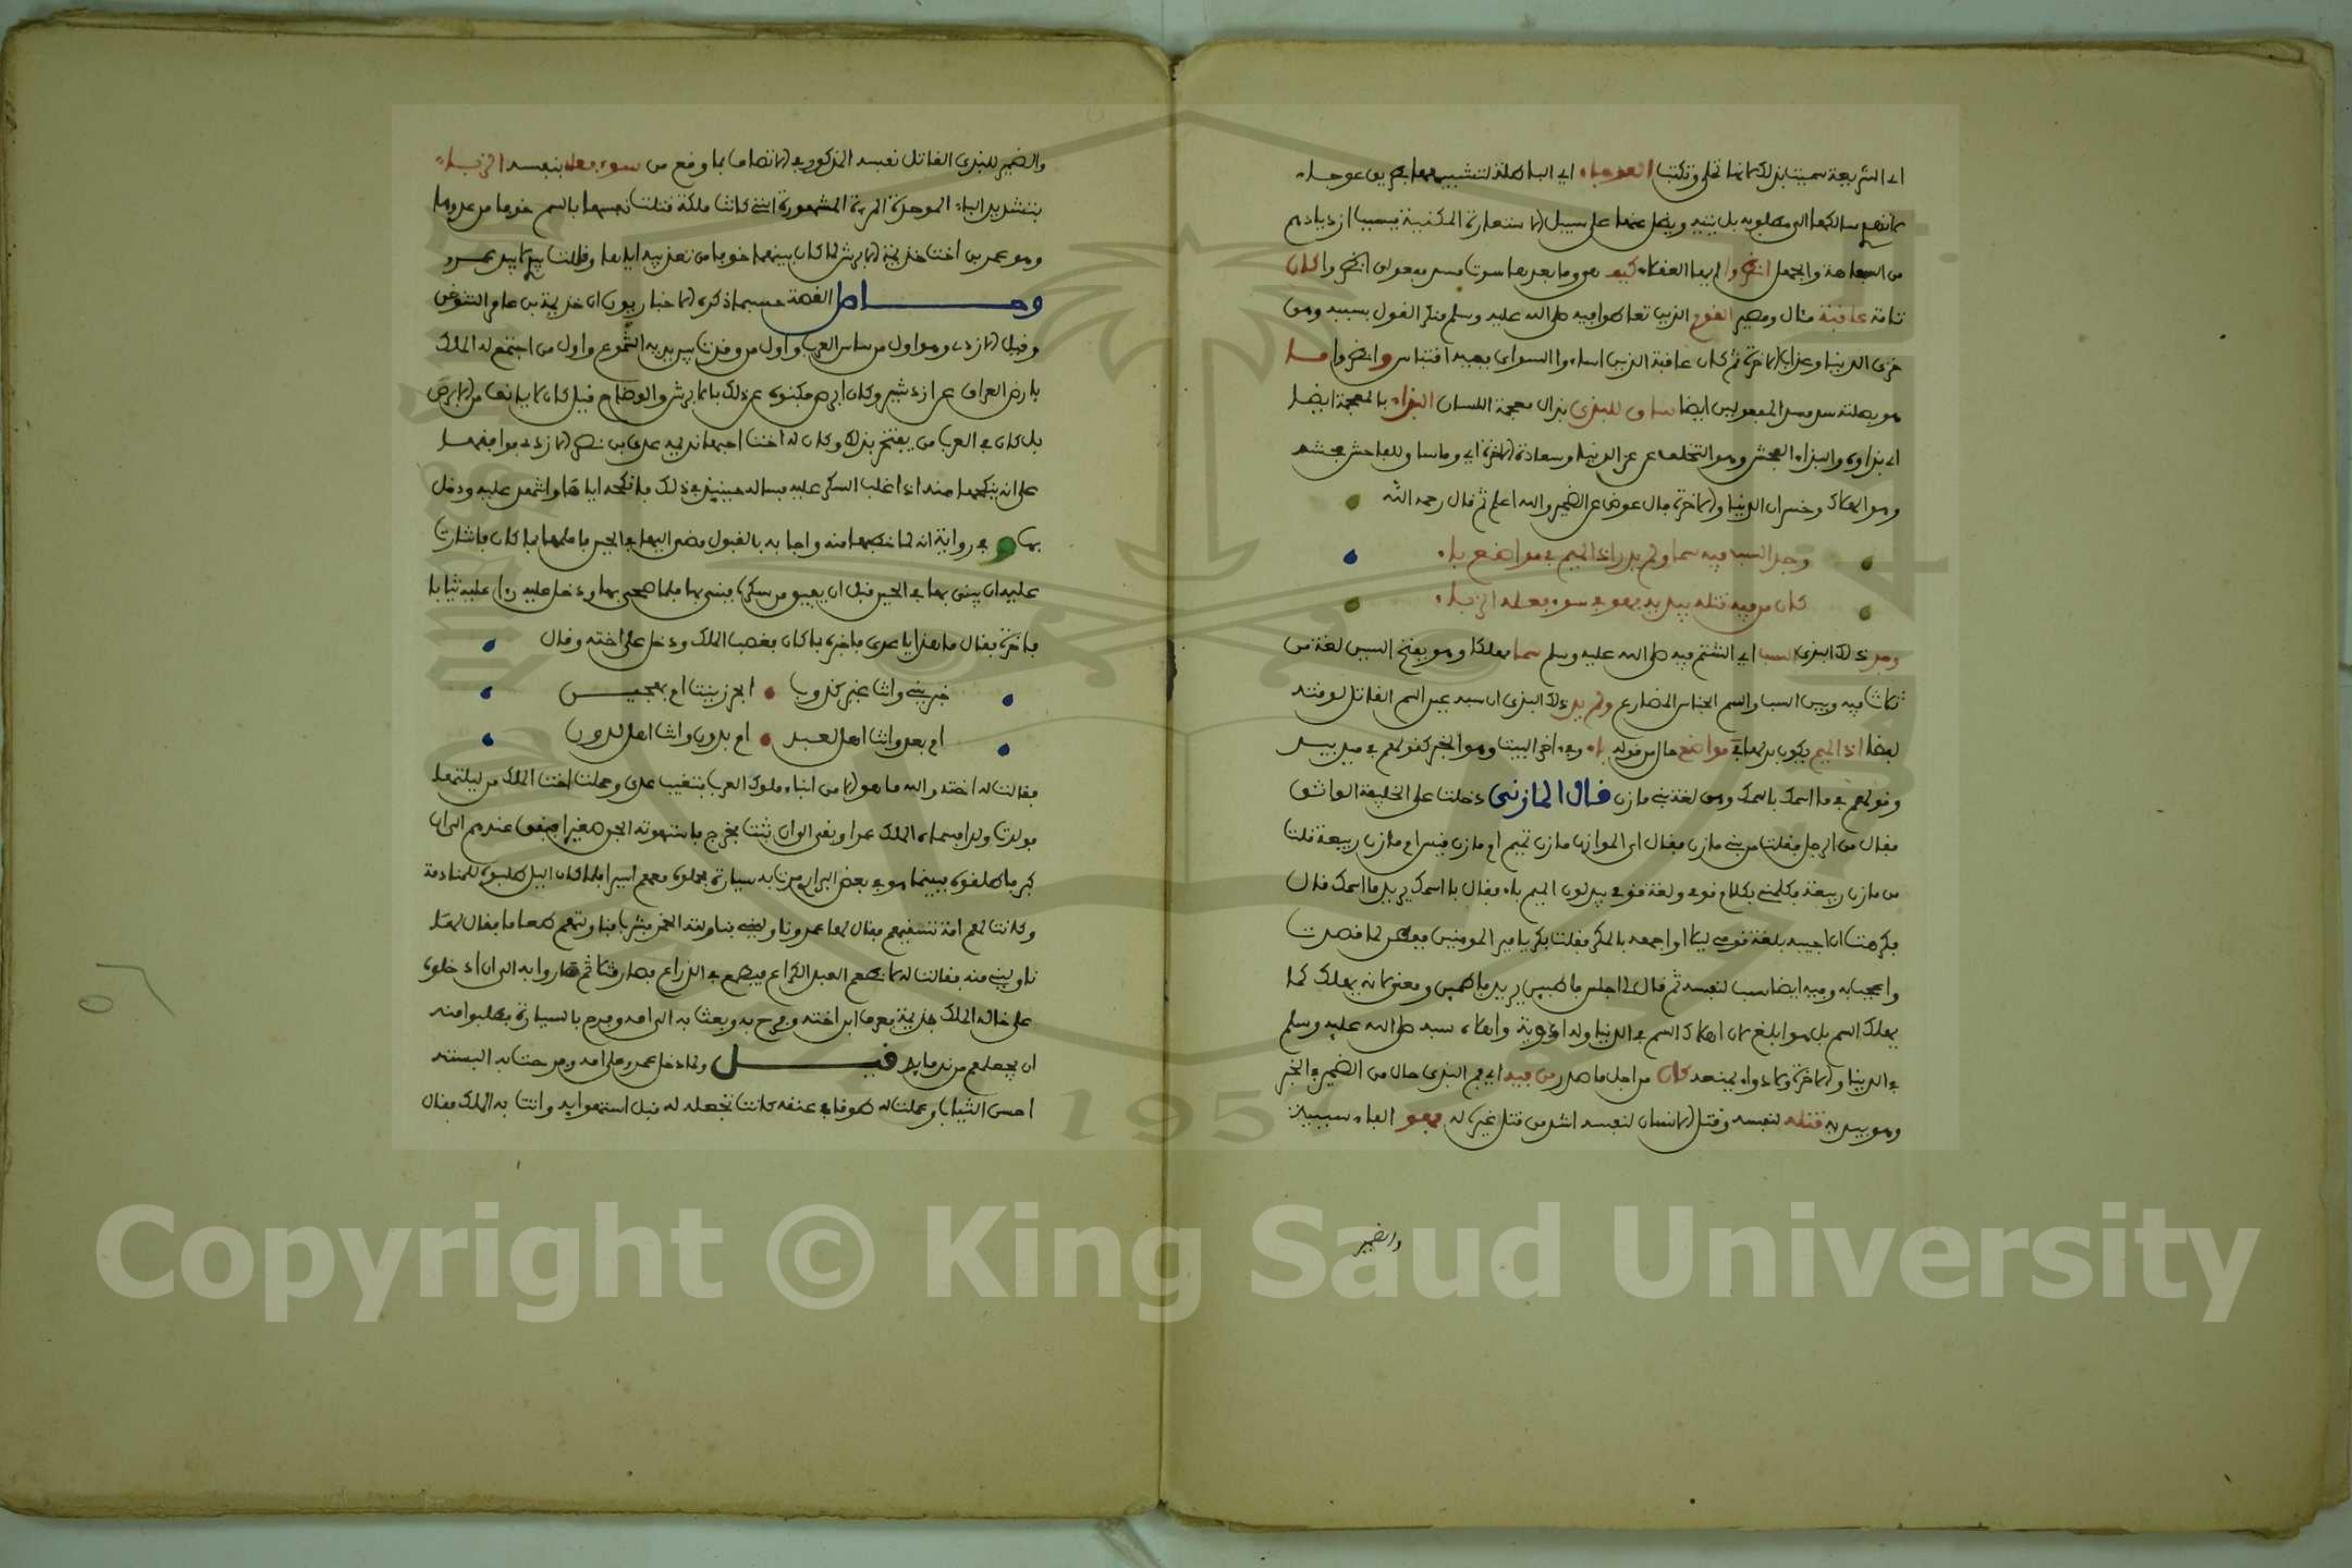 اي الشريعة سميت بذلك لانها تملى وتكتب العوجاء اي الباطلة لتشبيهها بطريق عوجاء
لا تصل سالكها الى مطلوبه بل يتيه ويضل عنها على سبيل الاستعارة المكنية بسبب ازديادهم
من السفاهة والجهل انظروا ايها العقلاء كيف هو وما بعدها سدت مسد مفعولي انظروا كان
تامة عاقبة مئال ومصير القوم الذين تعاطوا فيه صلى الله عليه وسلم منكر القول بسببه وهي
خزي الدنيا وعذاب الاخرة ثم كان عاقبة الذين اساءوا السوأى ففيه اقتباس وانظروا ما
هو بصلته سد مسد المفعولين ايضا ساق للبذي بذال معجمة اللسان البذاء بالمعجمة ايضا
اي بذاؤه والبذاء الفحش وهو التخلف عن عز الدنيا وسعادة الاخرة اي وما ساق للفاحش فحشه
وهو الهلاك وخسران الدنيا والاخرة فال عوض عن الضمير والله اعلم ثم قال رحمه الله
وجد السب فيه سما ولم يدر اذ الميم في مواضع باء
كان من فيه قتله بيديه فهو في سوء فعله الزباء
وجد ذلك البذي السب اي الشتم فيه صلى الله عليه وسلم سما مهلكا وهو بفتح السين لغة من
ثلاث فيه وبين السب والسم الجناس المضارع ولم يدر ذلك البذي ان سبه عين السم القاتل لوقته
لفظا اذ الميم يكون بدلها في مواضع حال من قوله باء وفي اخر البيت وهو الخبر كقولهم في ميد بيد
وقولهم في ما اسمك باسمك وهي لغة بني مازن قال المازني دخلت على الخليفة الواثق
فقال من الرجل فقلت من بني مازن فقال اي الموازن مازن تميم ام مازن قيس ام مازن ربيعة قلت
من مازن ربيعة فكلمني بكلام قومي ولغة قومي يبدلون الميم باء فقال با اسمك يريد ما اسمك قال
فكرهت ان اجيبه بلغة قومي ليلا اواجهه بالمكر فقلت بكر يا امير المومنين ففطن لما قصدت
واعجب به وفيه ايضا سبب لنفسه ثم قال لي اجلس فاطبين يريد فاطمين ومعنى لانه يهلك كما
يهلك السم بل هو ابلغ لان اهلاك السم في الدنيا وله ادوية واهلاك سبه صلى الله عليه وسلم
في الدنيا والاخرة ولا دواء ينفعه كان من اجل ما صدر من فيه اي فم البذي حال من الضمير في الخبر
وهو بيديه قتله لنفسه وقتل الانسان لنفسه اشد من قتل غيره له فهو الفاء سببية
والضمير
والضمير للبذي القاتل نفسه المذكور في الاتصاف بما وقع من سوء فعله بنفسه الزباء
بتشديد الباء الموحدة المرءة المشهورة التي كانت ملكة قتلت نفسها بالسم خوفا من عدوها
وهو عمر بن اخت خذيمة الابرش لما كان بينهما خوفا من تعذيبه اياها وقالت بيدي لا بيد عمرو
وحاصل القصة حسبما ذكره الاخباريون ان خذيمة بن عامر التنوخي
وقيل الازدي وهو اول من ساس العرب واول من وقدت بين يديه الشموع واول من اجتمع له الملك
بارض العراق عم ازدشير وكان ابرص فكنوه عن ذلك بالابرش والوضاح قيل كان لا يانف من البرص
بل كان في العرب من يفتخر بذلك وكان له اخت احبها نديمه عدي بن نصر الازدي فوافقها
على انه ينكحها منه اذا غلب السكر عليه فساله حينئذ في ذلك فانكحه اياها واشهد عليه ودخل
بها وفي رواية انه لما خطبها منه واجابه بالقبول مضى اليها في الحين فاعلمها بما كان فاشارت
عليه ان يبني بها في الحين قبل ان يفيق من سكره فبنى بها فلما اصبحى بها ودخل عليه رءا عليه ثيابا
فاخرة فقال ما هذا يا عدي فاخبره بما كان فغضب الملك ودخل على اخته وقال
خبريني وانت غير كذوب ابحر زنيت ام بهجين
ام بعبد وانت اهل لعبد ام بدون وانت اهل لدون
فقالت له اخته والله ما هو الا من ابناء ملوك العرب فتغيب عدي وحملت اخت الملك من ليلتها
فولدت ولدا فسماه الملك عمرا وبقي الى ان شب فخرج فاستهوته الجن صغيرا فبقى عندهم الى ان
كبر فاطلقوه فبينما هو في بعض البراري مرت به سيارة فحملوه معهم اسيرا فلما كان الليل طلبوه للمنادمة
وكانت لهم امة تسقيهم فقال لها عمرو ناوليني فناولته الخمر فشربا فناولتهم طعاما فقال لها
ناوليني منه فقالت له لا تطعم العبد الكراع فيطمع في الذراع فصارت مثلا ثم صاروا به الى ان ادخلوه
على خاله الملك جذيمة فعرفه ابن اخته وفرح به وبعث به الى امه وفرح بالسيارة فطلبوا منه
ان يجعلهم من ندمايه قيل ولما دخل عمرو على امه وفرحت به البسته
احسن الثياب وعملت له طوقا في عنقه كانت تجعله له قبل استهوايه واتت به الملك فقال
Copyright © King Saud University
1957